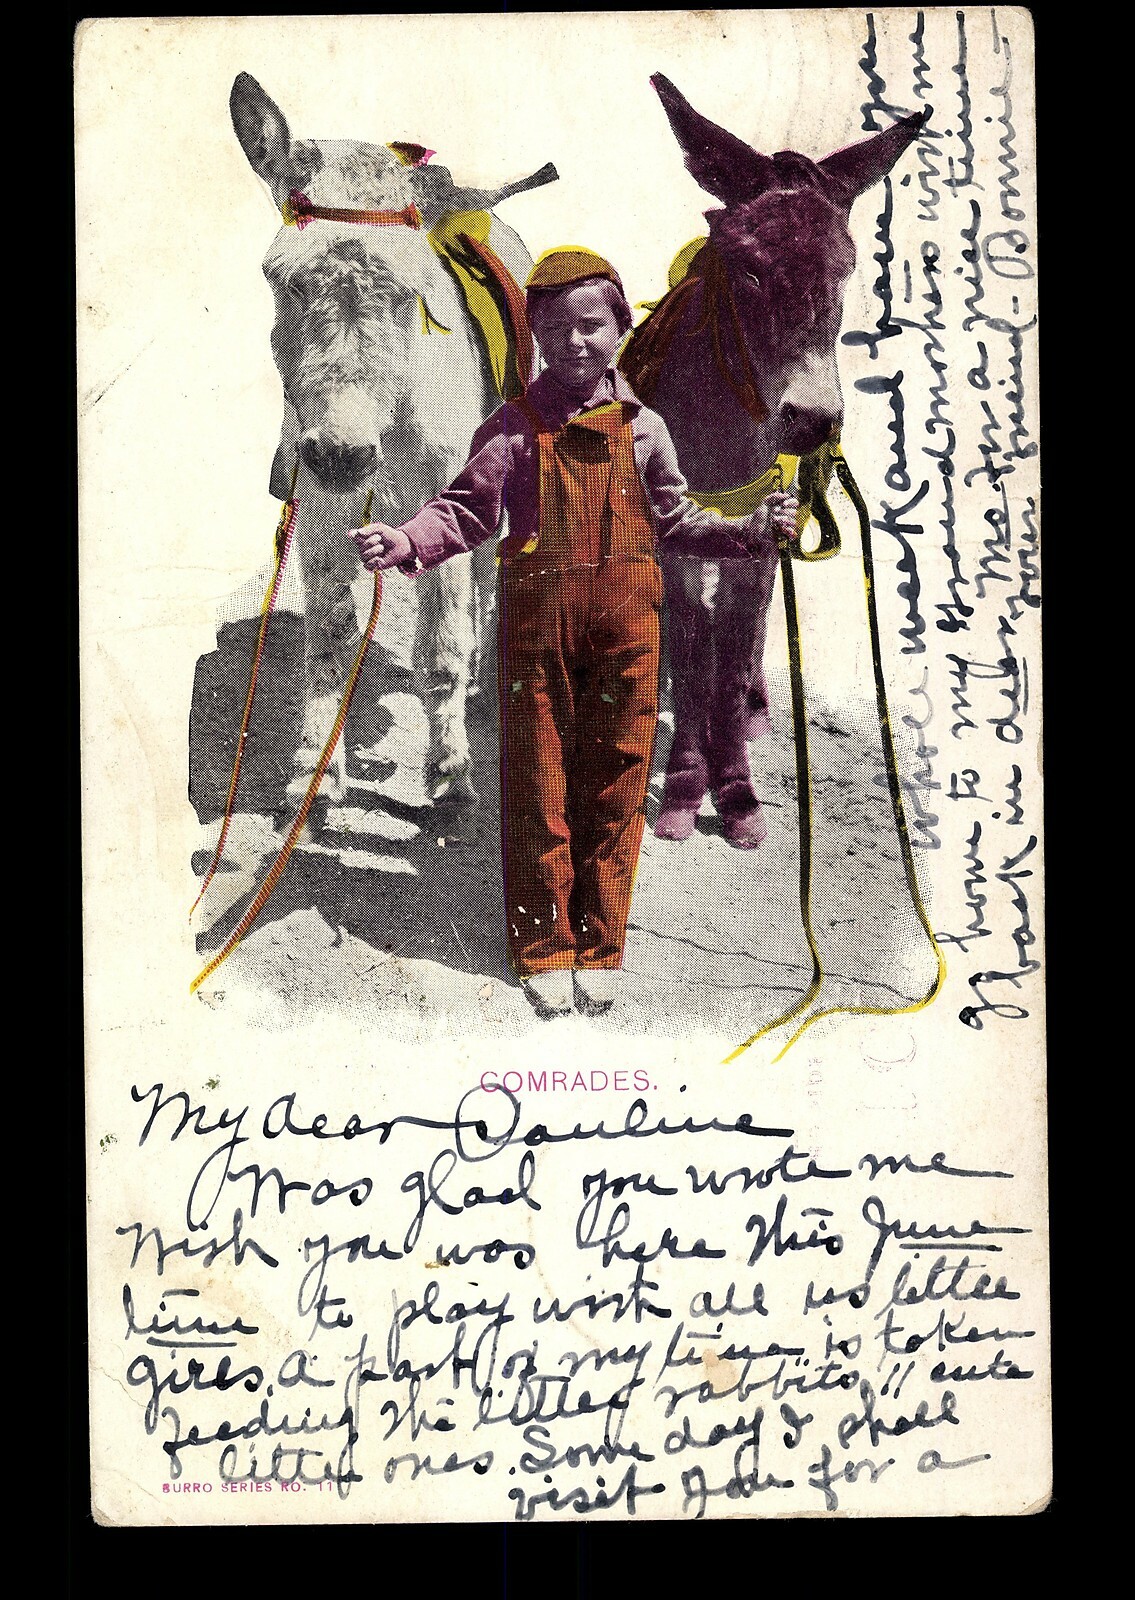 COMRADES.
My dear Pauline
Was glad you wrote me
Wish you was here this June
time to play with all us little
girls. A part of my time is taken
feeding the little rabbits "cute
little ones. Some day I shall
visit you for a
BURRO SERIES NO. 11
whole week and have you
home to my Grandmothers with me
back in dear for a nice time
your friend - Bonnie -